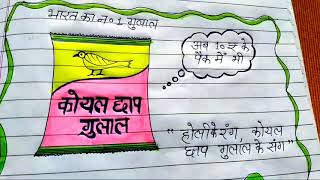 भारत का नं० 1 गुलाल
कोयल छाप
गुलाल
अब 10 ₹ के
पैक में भी
"होली के रंग, कोयल
छाप गुलाल के संग"